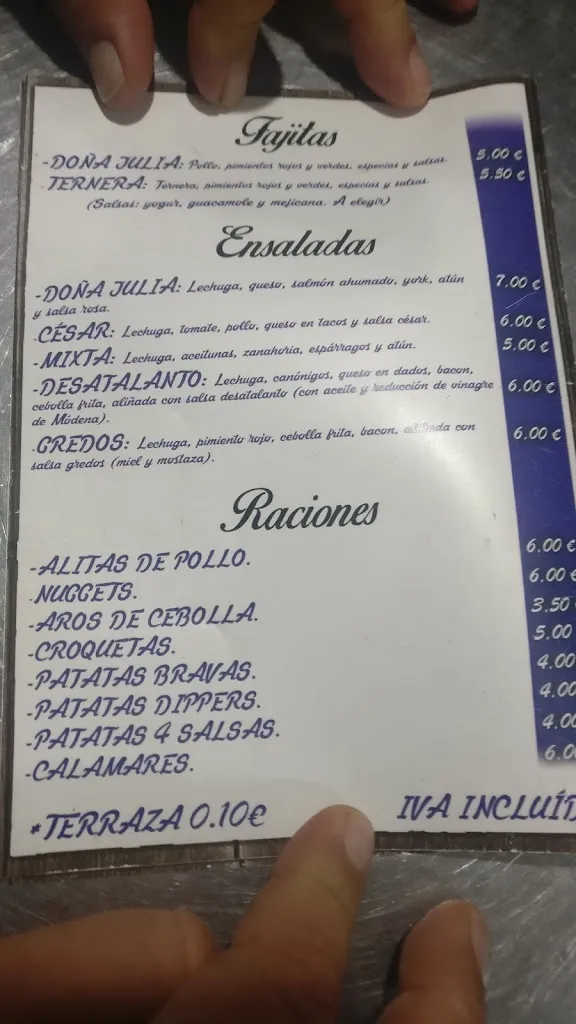 Fajitas
-DOÑA JULIA: Pollo, pimientos rojos y verdes, especias y salsas. 5.00 €
TERNERA: Ternera, pimientos rojos y verdes, especias y salsas. 5.50 €
(Salsas: yogur, guacamole y mejicana. A elegir)
Ensaladas
-DOÑA JULIA: Lechuga, queso, salmón ahumado, york, atún 7.00 €
y salsa rosa.
-CÉSAR: Lechuga, tomate, pollo, queso en tacos y salsa césar. 6.00 €
-MIXTA: Lechuga, aceitunas, zanahoria, espárragos y atún. 5.00 €
-DESATALANTO: Lechuga, canónigos, queso en dados, bacon,
cebolla frita, aliñada con salsa desatalanto (con aceite y reducción de vinagre 6.00 €
de Módena).
-GREDOS: Lechuga, pimiento rojo, cebolla frita, bacon, aliñada con 6.00 €
salsa gredos (miel y mostaza).
Raciones
-ALITAS DE POLLO. 6.00 €
-NUGGETS. 6.00 €
-AROS DE CEBOLLA. 3.50
-CROQUETAS. 5.00
-PATATAS BRAVAS. 4.00
-PATATAS DIPPERS. 4.00
-PATATAS 4 SALSAS. 4.00
-CALAMARES. 6.0
*TERRAZA 0.10€ IVA INCLUÍD